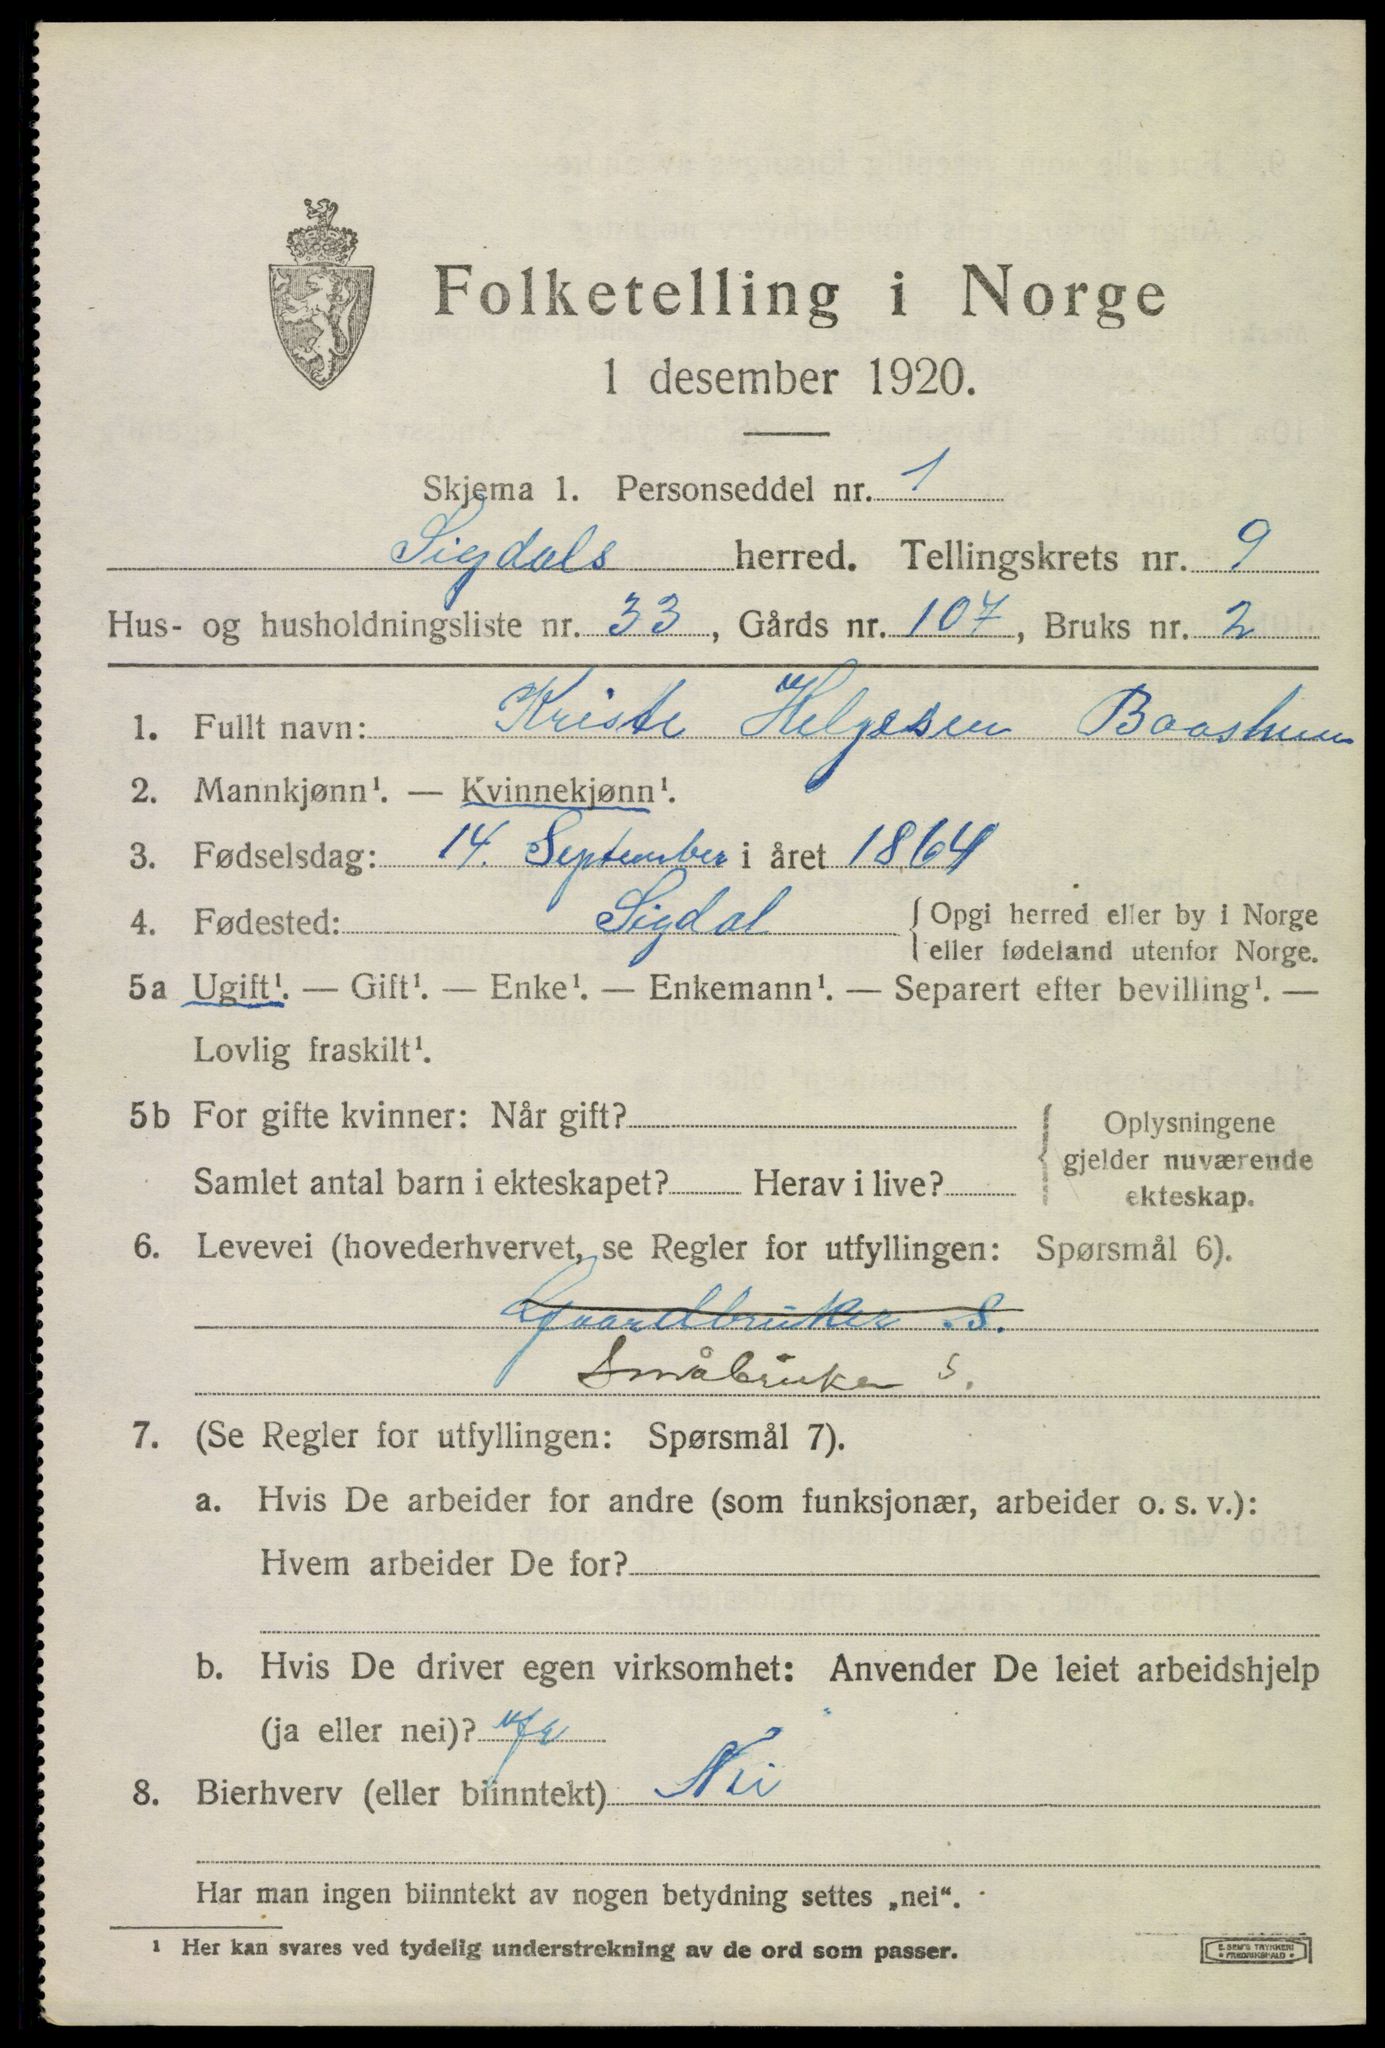 Folketelling i Norge
1 desember 1920.
Skjema 1. Personseddel nr. 1
Sigdals herred. Tellingskrets nr. 9
Hus- og husholdningsliste nr. 33, Gårds nr. 107, Bruks nr. 2
1. Fullt navn: Kriste Helgesen
2. Mannkjønn¹. — Kvinnekjønn¹.
3. Fødselsdag: 14. September i året 1864
4. Fødested: Sigdal { Opgi herred eller by i Norge
eller fødeland utenfor Norge.
5a Ugift¹. — Gift¹. — Enke¹. — Enkemann¹. — Separert efter bevilling¹. —
Lovlig fraskilt¹.
5b For gifte kvinner: Når gift?
Samlet antal barn i ekteskapet? Herav i live?
{ Oplysningene
gjelder nuværende
ekteskap.
6. Levevei (hovederhvervet, se Regler for utfyllingen: Spørsmål 6).
Gaardbruker S.
Småbruker S.
7. (Se Regler for utfyllingen: Spørsmål 7).
a. Hvis De arbeider for andre (som funksjonær, arbeider o. s. v.):
Hvem arbeider De for?
b. Hvis De driver egen virksomhet: Anvender De leiet arbeidshjelp
(ja eller nei)? Ja
8. Bierhverv (eller biinntekt) Nei
Har man ingen biinntekt av nogen betydning settes „nei“.
¹ Her kan svares ved tydelig understrekning av de ord som passer.
E. SEM'S TRYKKERI
FREDRIKSHALD